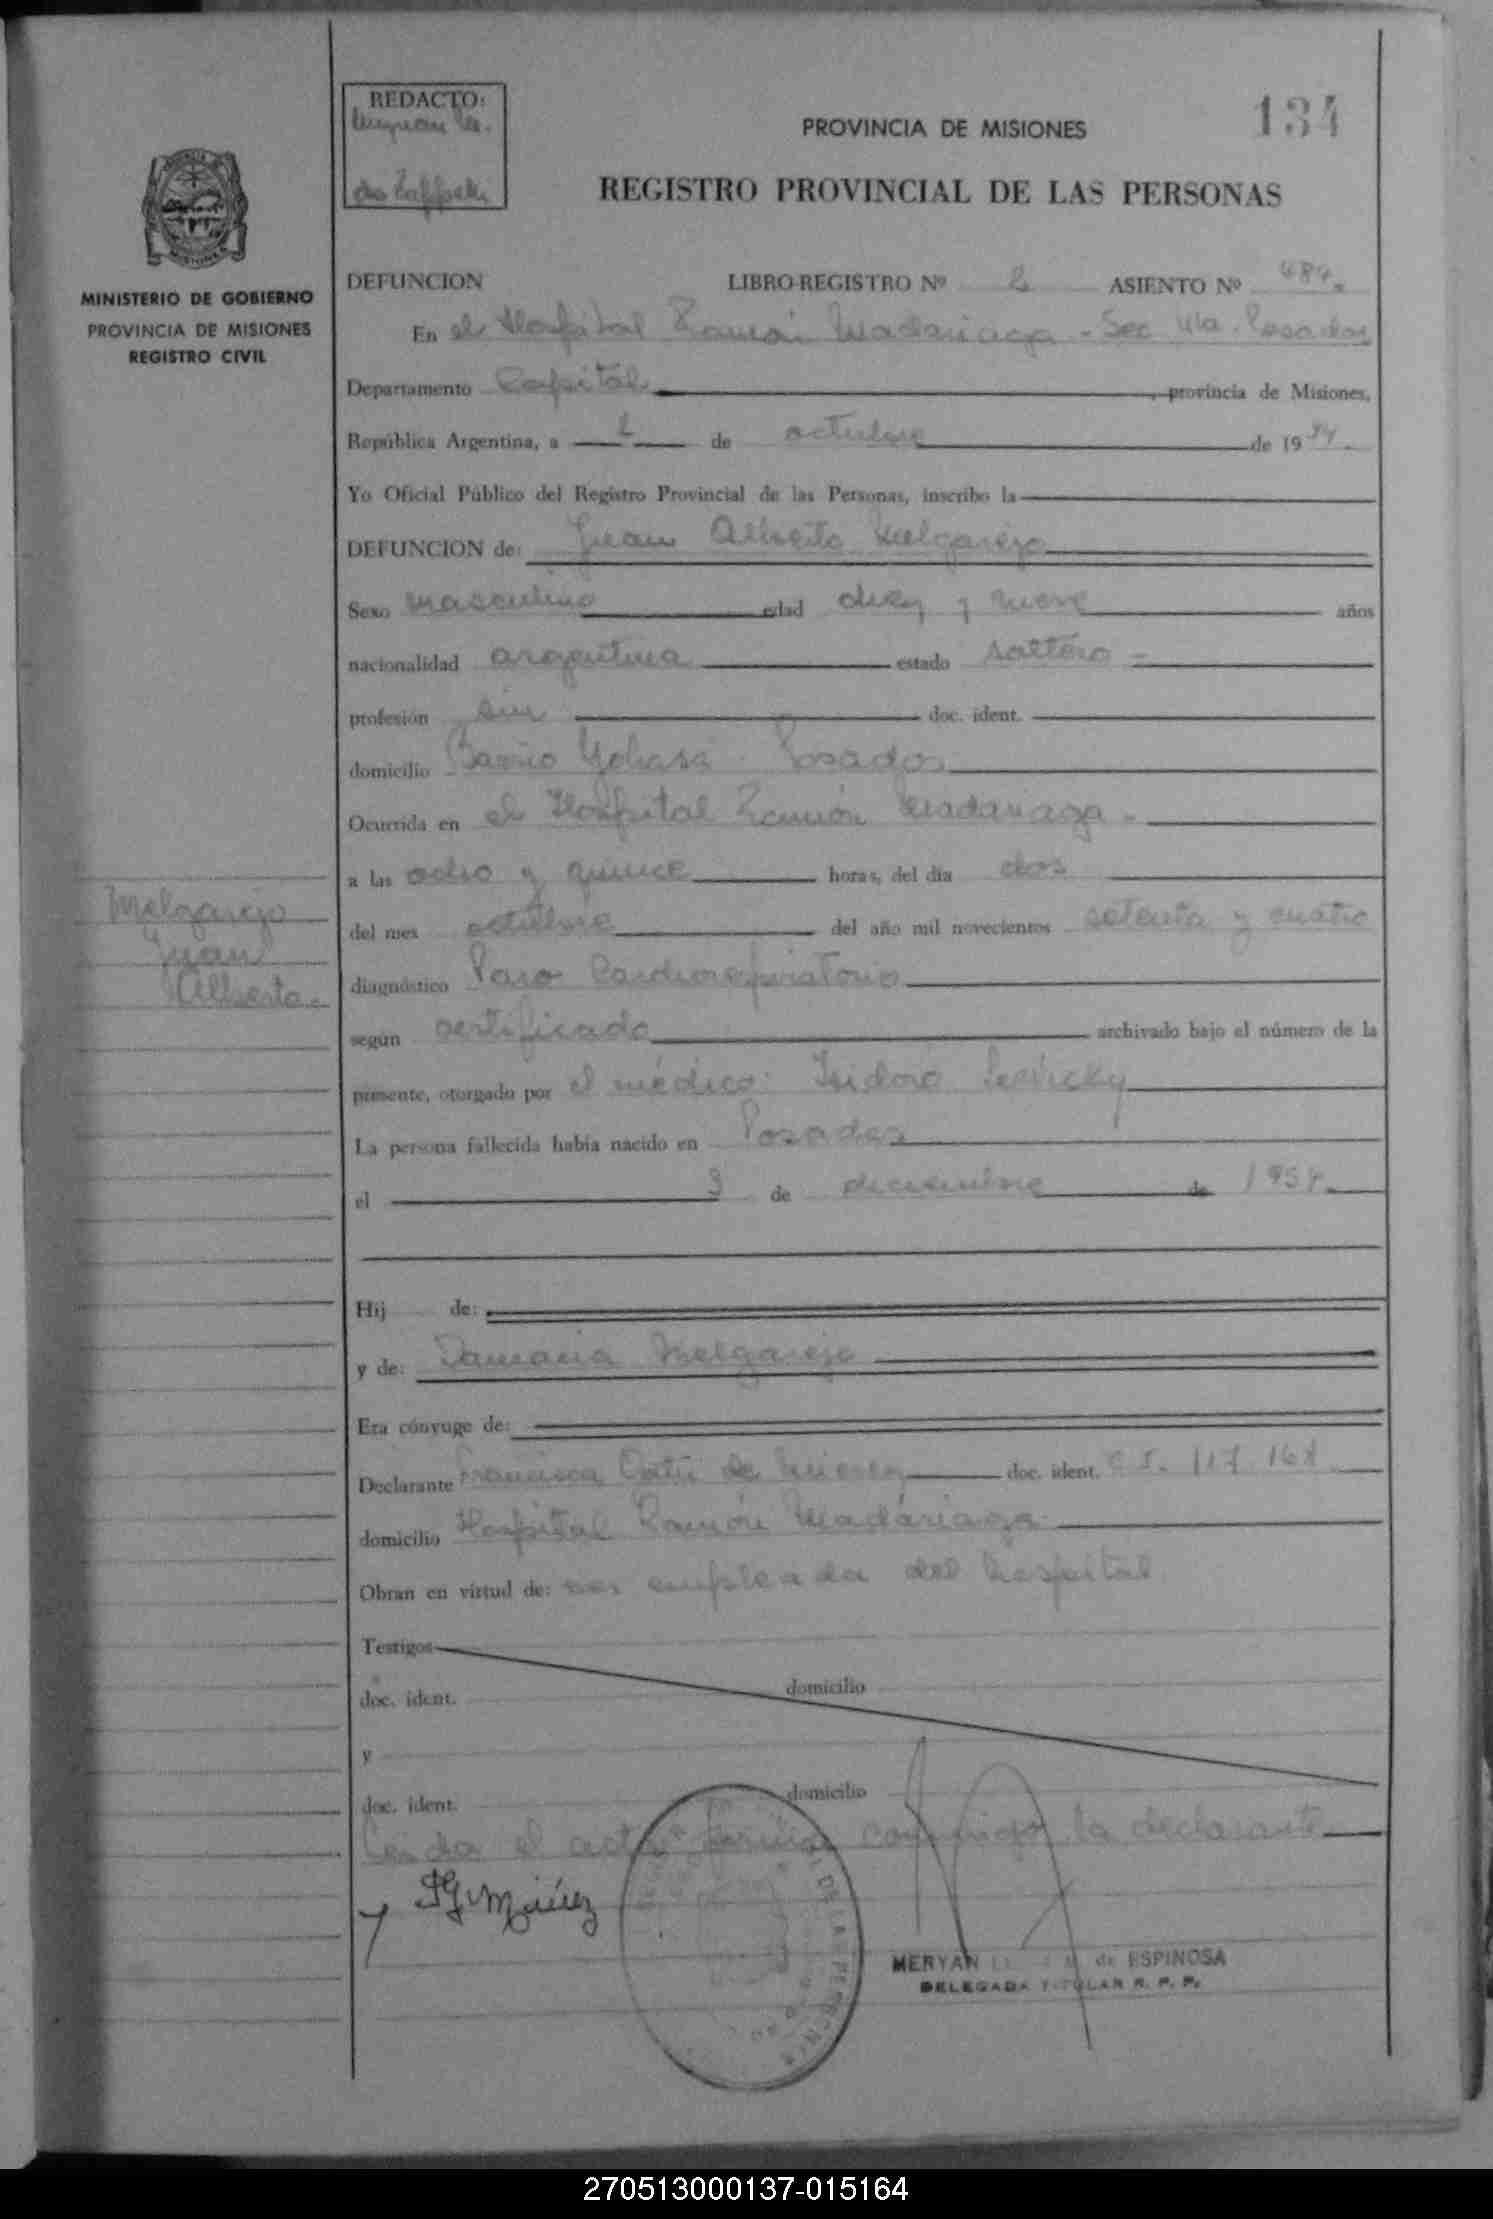 134
REDACTO:
PROVINCIA DE MISIONES
REGISTRO PROVINCIAL DE LAS PERSONAS
MINISTERIO DE GOBIERNO
PROVINCIA DE MISIONES
REGISTRO CIVIL
DEFUNCION LIBRO-REGISTRO Nº 2 ASIENTO Nº 484.
En el Hospital Ramón Madariaga - Sec 4ta. Posadas
Departamento Capital, provincia de Misiones,
República Argentina, a 2 de octubre de 1974.
Yo Oficial Público del Registro Provincial de las Personas, inscribo la
DEFUNCION de: Juan Alberto Melgarejo
Sexo masculino edad diez y nueve años
nacionalidad argentina estado soltero -
profesión sin doc. ident.
domicilio Barrio Yohasá - Posadas
Ocurrida en el Hospital Ramón Madariaga -
a las ocho y quince horas, del día dos
del mes octubre del año mil novecientos setenta y cuatro
Melgarejo
Juan
Alberto.-
diagnóstico Paro Cardiorespiratorio
según certificado archivado bajo el número de la
presente, otorgado por el médico: Isidoro Levicky
La persona fallecida había nacido en Posadas
el 3 de diciembre de 1954.
Hij de:
y de: Damacia Melgarejo
Era cónyuge de:
Declarante Francisca de doc. ident. C.I. 117.167
domicilio Hospital Ramón Madariaga
Obran en virtud de: ser empleada del hospital.
Testigos
doc. ident. domicilio
y
doc. ident. domicilio
Leída el acta firma conmigo la declarante
MERYAN de ESPINOSA
DELEGADA TITULAR R. P. P.
270513000137-015164